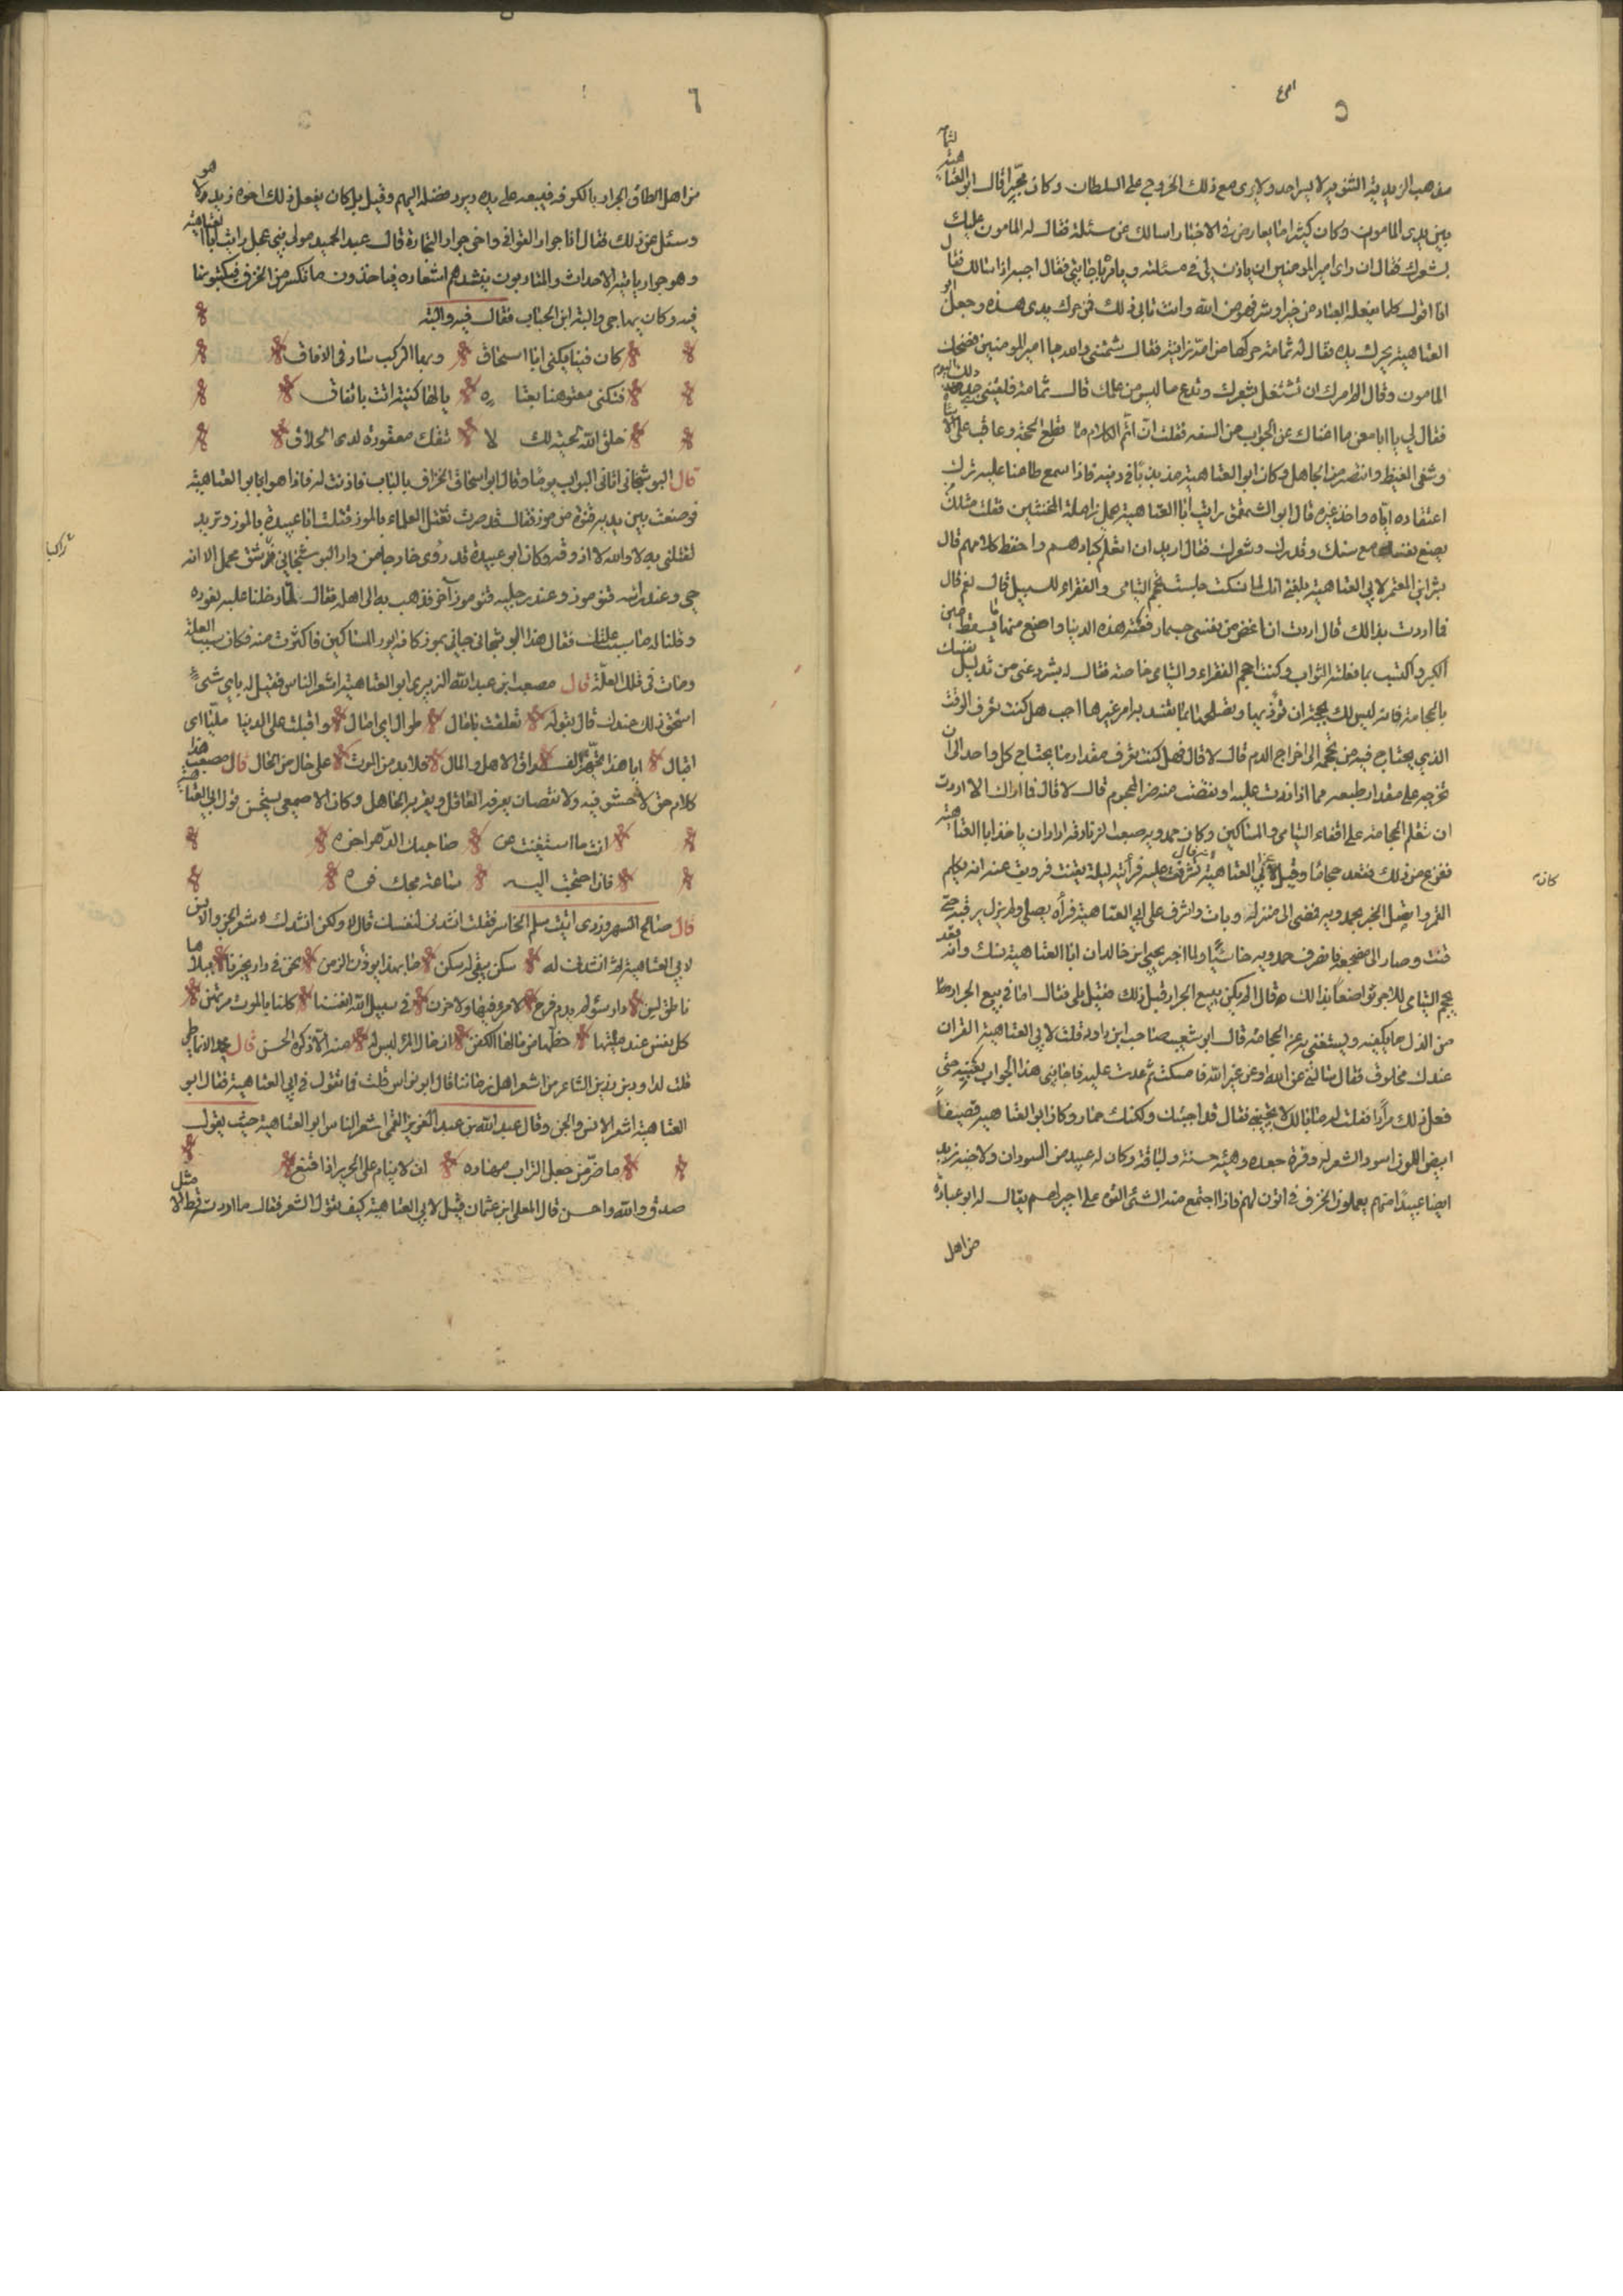 ٥
مذهب الزيدية البترية لا يسر احد ولا يرى مع ذلك الخروج على السلطان وكان مجبرا قال ابو العتاهية
بين يدى المامون وكان كثيرا ما يعارض فى الاخبار اسالك عن مسئلة فقال له المامون عليك
بشعرك فقال ان راى امير المومنين ان ياذن لي فى مسئلته ويامره باجابتي فقال اجبه اذا سالك فقال
انا اقول كلما يفعله العباد من خير او شر فهو من الله وانت تابى ذلك فمن حرك يدى هذه وجعل ابو
العتاهية يحرك يده فقال له ثمامة حركها من امه زانية فقال شتمنى والله يا امير المومنين فضحك
المامون وقال الم امرك ان تشتغل بشعرك وتدع ما ليس من عملك قال ثمامة فلقيني بعد ذلك اليوم
فقال لي يا ابا معن ما اغناك عن الجواب من السفه فقلت ان اتم الكلام ما قطع الحجة وعاقب على الاساءة
وشفى الغيظ وانتصر من الجاهل وكان ابو العتاهية مذبذبًا فى دينه فاذا سمع طاعنا عليه ترك
اعتقاده اياه واخذ غيره قال ابو الشمقمق رايت ابا العتاهية يحمل زاملة المخنثين فقلت مثلك
يضع نفسه مع سنك وقدرك وشعرك فقال اريد ان اتعلم كيادهم واحفظ كلامهم قال
بشر ابن المعتمر لابي العتاهية بلغني انك لما نسكت جلست تحجم اليتامى والفقراء للسبيل قال نعم قال
فما اردت بذالك قال اردت ان اغض من نفسى حسبما رفعته هذه الدنيا واضع منها ما يسقط عني
الكبر واكتسب بما فعلته الثواب وكنت احجم الفقراء واليتامى خاصة فقال له بشر دعني من تذليل نفسك
بالحجامة فانه ليس لك بحجة ان تؤذيها وتصلحها بما تفسد به امر غيرها احب هل كنت تعرف الوقت
الذي يحتاج فيه من تحجمه الى اخراج الدم قال لا قال فهل كنت تعرف مقدار ما يحتاج كل واحد الى ان
تخرجه على مقدار طبعه مما اذا زدت عليه او نقصت منه ضر المحجوم قال لا قال فما اراك الا اردت
ان تتعلم الحجامة على اقفاء اليتامى والمساكين وكان حمدويه صاحب الزنادقة اراد ان ياخذ ابا العتاهية
ففزع من ذلك فقعد حجامًا وقيل لابي العتاهية
القمر واتصل الخبر بحمدويه فمضى الى منزله وبات واشرف على ابي العتاهية فرأه يصلي ولم يزل يرقبه حتى
قنت وصار الى مضجعه فانصرف حمدويه خاسئًا ولما اخبر يحيى ابن خالد ان ابا العتاهية نسك وانه يقعد
يحجم اليتامى للاجر تواضعًا بذالك قال الم يكن يبيع الجرار قبل ذلك فقيل بلى فقال اما فى بيع الجرار
من الذل ما يكفيه ويستغنى به عن الحجامة قال ابو شعيب صاحب ابن داود قلت لابي العتاهية القران
عندك مخلوق فقال سالتني عن الله او عن غير الله فامسكت ثم عدت عليه فاجابني هذا الجواب بعينه حتى
فعل ذلك مرارًا فقلت له ما لك لا تجيبني فقال قد اجبتك ولكنك حمار وكان ابو العتاهية قضيفًا
ابيض اللون اسود الشعر له وفرة جعدة وهيئة حسنة ولباقة وكان له عبيد من السودان ولاخيه زيد
ايضا عبيدًا منهم يعملون الخزف فى اتون لهم فاذا اجتمع منه الشئ القوه على اجير لهم يقال له ابو عباد
من اهل
كان
٦
من اهل الطاق الجرار بالكوفة فيبيعه على يده ويرد فضله اليهم وقيل بل كان يفعل ذلك اخوه زيد لا هو
وسئل عن ذلك فقال انا جرار القوافي واخي جرار التجارة قال عبد الحميد مولى بني عجل رايت ابا العتاهية
وهو جرار ياتيه الاحداث والمتادبون ينشدهم اشعاره فياخذون ما تكسر من الخزف فيكتبونها
فيه وكان يهاجي والبة ابن الحباب فقال فيه والبة
كان فينا يكنى ابا اسحاق وبها الركب سار فى الافاق
فتكنى معتوهنا بعتاه يا لها كنية اتت باتفاق
خلق الله لحية لك لا تنفك معقودة لدى الحلاق
قال البوشنجاني اتاني البواب يومًا وقال ابو اسحاق الخزاف بالباب فاذنت له فاذا هو ابو العتاهية
فوضعت بين يديه قنوة من موز فقال قد صرت تقتل العلماء بالموز قتلت ابا عبيدة بالموز وتريد
تقتلني به لا والله لا اذوقه وكان ابو عبيدة قد رُوى خارجا من دار البوشنجاني فى شق محمل الا انه
حي وعند رأسه قنو موز وعند رجليه قنو موز آخر فذهب به الى اهله فقال لما دخلنا عليه نعوده
وقلنا له ما سبب علتك فقال هذا البوشنجاني جاني بموز كانه ايور المساكين فاكثرت منه فكان سبب العلة
ومات فى تلك العلّة قال مصعب ابن عبد الله الزبيرى ابو العتاهية اشعر الناس فقيل له باي شيءٍ
استحق ذلك عندك قال بقوله تعلقت بامال طوال اي امال واقبلت على الدنيا ملبًا اي
اقبال ايا هذا تجهز لفراق الاهل والمال فلا بد من الموت على حال من الحال قال مصعب هذا
كلام حق لا حشو فيه ولا نقصان يعرفه العاقل ويقر به الجاهل وكان الاصمعي يستحسن قول ابي العتاهية
انت ما استغنيت عن صاحبك الدهر اخوه
فاذا احتجت اليه ساعة مجك فوه
قال صالح الشهرزورى اتيت سلم الخاسر فقلت انشدنى لنفسك قال لا ولكن انشدك لاشعر الجن والانس
لابي العتاهية ثم انشدنى له سكن يبقى له سكن ما بهذا يوذن الزمن نحن فى دار يخبرنا ببلاها
ناطق لسن دار سوء لم يدم فرح لامرء فيها ولا حزن فى سبيل الله انفسنا كلنا بالموت مرتهن
كل نفس عند ميتتها حظها من مالها الكفن ان مال المرء ليس له منه الا ذكره الحسن قال محمد الانماطي
قلت لداود بن رزين الشاعر من اشعر اهل زماننا قال ابو نواس قلت فما تقول فى ابي العتاهية فقال ابو
العتاهية اشعر الانس والجن وقال عبد الله بن عبد العزيز العمرى اشعر الناس ابو العتاهية حيث يقول
ما ضر من جعل التراب مهاده ان لا ينام على الحرير اذا قنع
صدق والله واحسن قال المعلى ابن عثمان قيل لابي العتاهية كيف تقول الشعر فقال ما اردته قط الا مثل